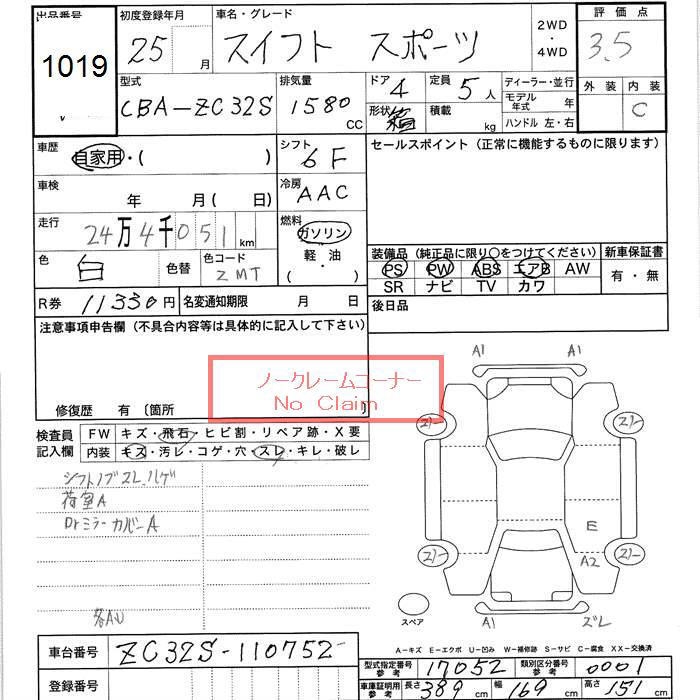 出品番号 初度登録年月 車名・グレード 2WD・4WD 評価点
1019 25 月 スイフト スポーツ 3.5
型式 排気量 ドア 4 定員 5人 ディーラー・並行 外装 内装
CBA-ZC32S 1580 CC 形状 箱 積載 kg モデル年式 年 C
ハンドル 左・右
車歴 自家用・( ) シフト 6F セールスポイント (正常に機能するものに限ります)
車検 年 月 (日) 冷房 AAC
走行 24万4千051 km 燃料 ガソリン
軽油
( )
色 白 色替 色コード ZMT
装備品 (純正品に限り○をつけてください) 新車保証書
PS PW ABS エアB AW 有・無
SR ナビ TV カワ
R券 11330円 名変通知期限 月 日 後日品
注意事項申告欄 (不具合内容等は具体的に記入して下さい)
ノークレームコーナー
No Claim
修復歴 有 (箇所
検査員記入欄 FW キズ・飛石・ヒビ割・リペア跡・X要
内装 キズ・汚レ・コゲ・穴・スレ・キレ・破レ
シフトノブスレ.ハゲ
荷室A
Drミラーカバー A
各AU
A1 A1
E
A2
スペア A1 ズレ
A-キズ E-エクボ U-凹み W-補修跡 S-サビ C-腐食 XX-交換済
車台番号 ZC32S-110752-
登録番号
型式指定番号参考 17052 類別区分番号参考 0001
車庫証明用参考 長さ 389 cm 幅 169 cm 高さ 151 cm